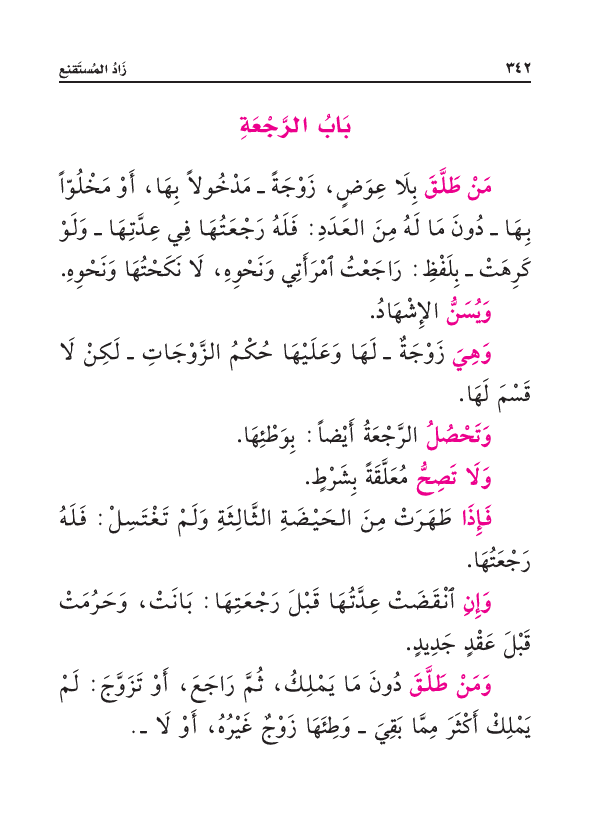 ٣٤٢ زَادُ المُستَقنِع
بَابُ الرَّجْعَةِ
مَنْ طَلَّقَ بِلَا عِوَضٍ، زَوْجَةً ـ مَدْخُولاً بِهَا، أَوْ مَخْلُوّاً
بِهَا ـ دُونَ مَا لَهُ مِنَ العَدَدِ: فَلَهُ رَجْعَتُهَا فِي عِدَّتِهَا ـ وَلَوْ
كَرِهَتْ ـ بِلَفْظِ: رَاجَعْتُ ٱمْرَأَتِي وَنَحْوِهِ، لَا نَكَحْتُهَا وَنَحْوِهِ.
وَيُسَنُّ الإِشْهَادُ.
وَهِيَ زَوْجَةٌ ـ لَهَا وَعَلَيْهَا حُكْمُ الزَّوْجَاتِ ـ لَكِنْ لَا
قَسْمَ لَهَا.
وَتَحْصُلُ الرَّجْعَةُ أَيْضاً: بِوَطْئِهَا.
وَلَا تَصِحُّ مُعَلَّقَةً بِشَرْطٍ.
فَإِذَا طَهَرَتْ مِنَ الحَيْضَةِ الثَّالِثَةِ وَلَمْ تَغْتَسِلْ: فَلَهُ
رَجْعَتُهَا.
وَإِنِ ٱنْقَضَتْ عِدَّتُهَا قَبْلَ رَجْعَتِهَا: بَانَتْ، وَحَرُمَتْ
قَبْلَ عَقْدٍ جَدِيدٍ.
وَمَنْ طَلَّقَ دُونَ مَا يَمْلِكُ، ثُمَّ رَاجَعَ، أَوْ تَزَوَّجَ: لَمْ
يَمْلِكْ أَكْثَرَ مِمَّا بَقِيَ ـ وَطِئَهَا زَوْجٌ غَيْرُهُ، أَوْ لَا ـ.